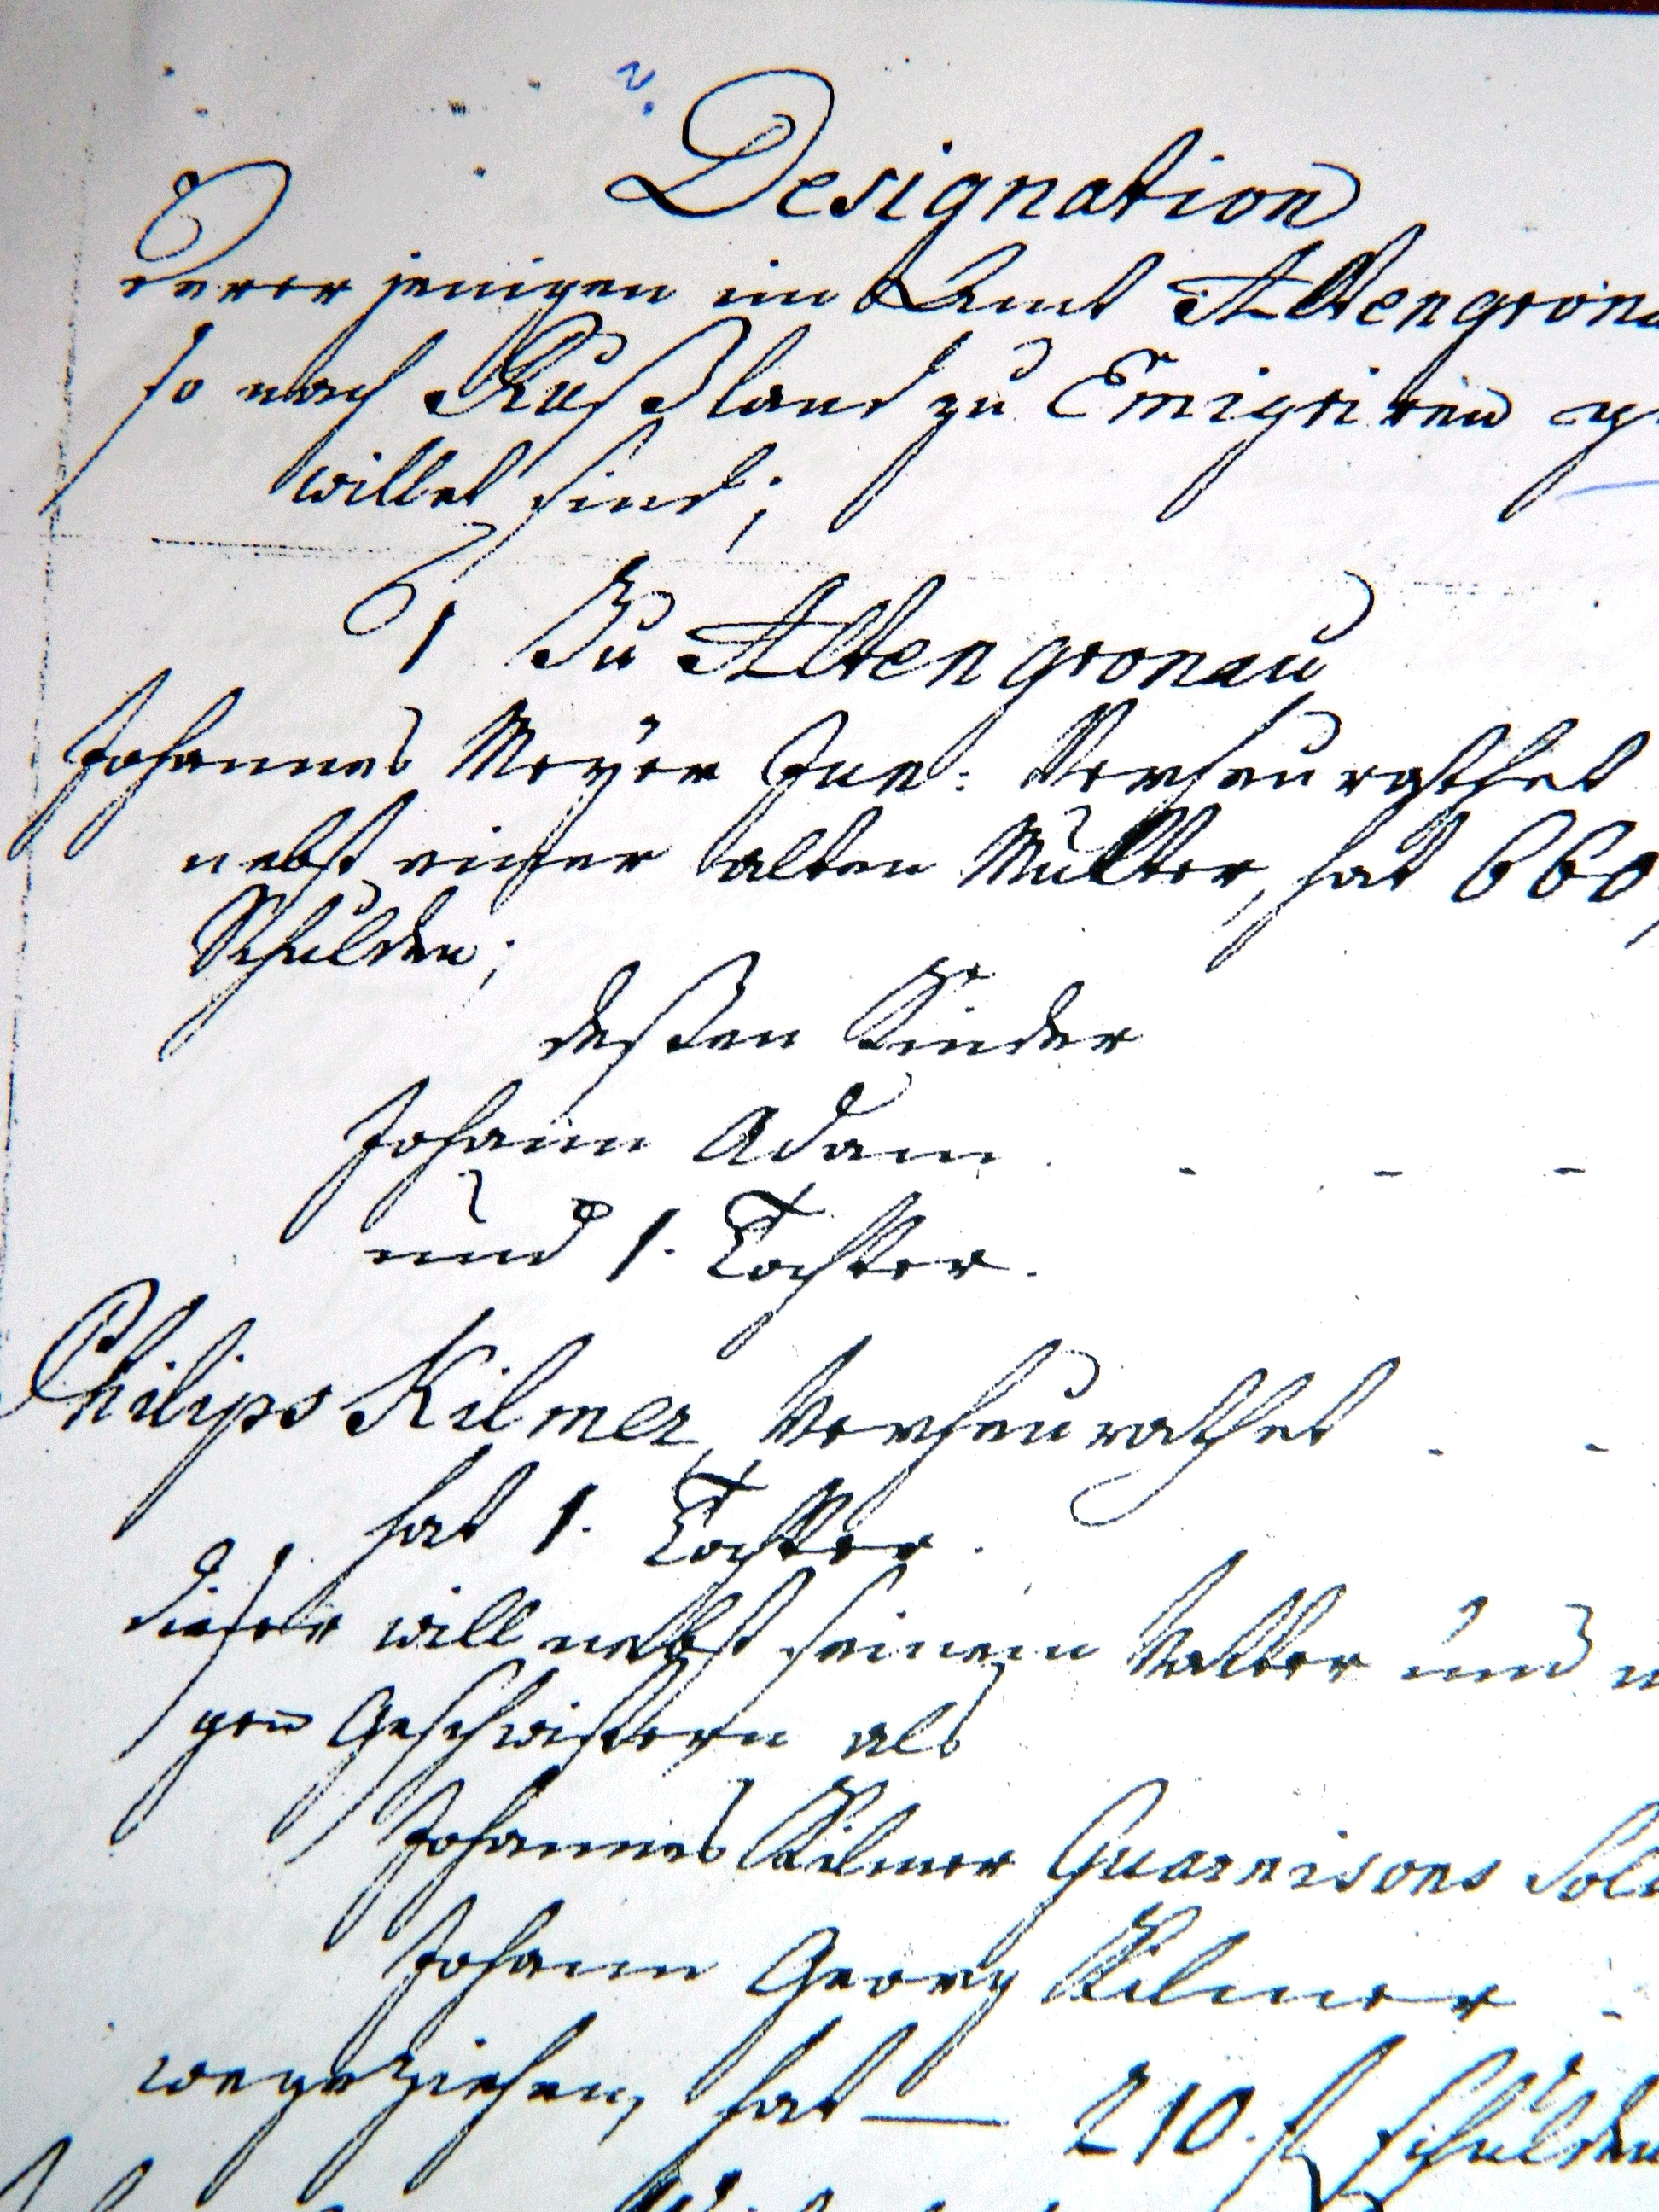 Designation
Derer jenigen im Amt Altengrona
so nach Rußland zu Emigriren ge
willet sind;
1 Zu Altengronau
Johannes Meyer Jun: Verheurathet
nebst einer alten Mutter, hat 660
Schulden;
deßen Kinder
Johann Adam . - - -
und 1. Tochter.
Philips Kilmer, Verheurathet - -
hat 1. Tochter.
dieser will nebst seinem Vatter und
gen Geschwistern als
Johannes Kilmer Guarnisons Sol
Johann Georg Kilmer -
wegziehen, hat — 210. fl Schulden